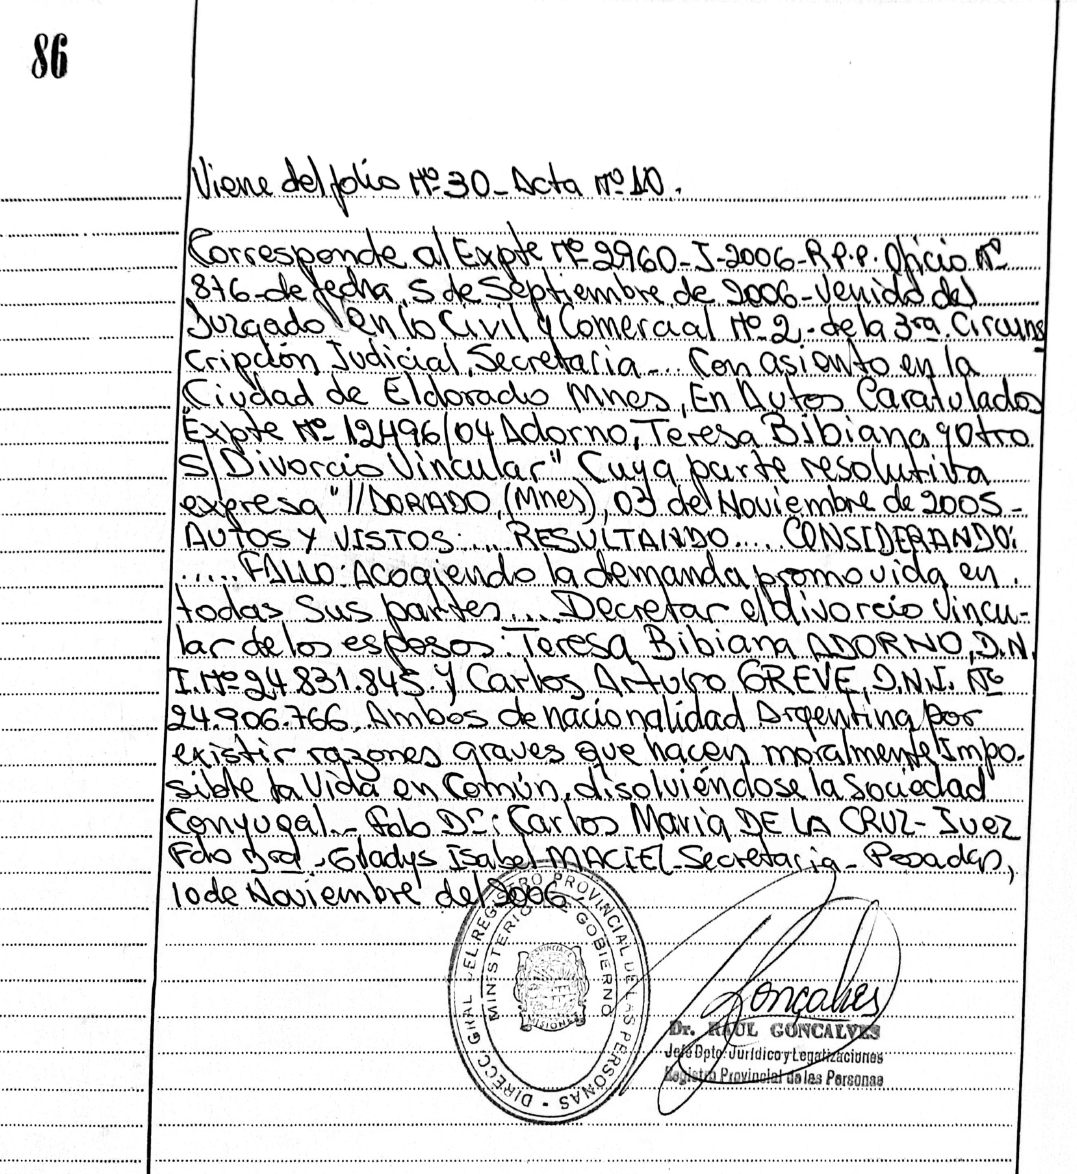 86
Viene del folio Nº 30 - Acta Nº 10.
Corresponde al Expte Nº 2960-J-2006-R.P.P. Oficio Nº
876- de fecha, 5 de Septiembre de 2006- Venido del
Juzgado en lo Civil y Comercial Nº 2.- de la 3ra. Circuns
cripción Judicial, Secretaria.... Con asiento en la
Ciudad de Eldorado Mnes, En Autos Caratulados
"Expte Nº 12496/04 Adorno, Teresa Bibiana y Otro
S/ Divorcio Vincular" Cuya parte resolutiva
expresa "//DORADO, (Mnes), 03 de Noviembre de 2005-
AUTOS Y VISTOS..... RESULTANDO.... CONSIDERANDO:
..... FALLO: Acogiendo la demanda promovida en
todas Sus partes.... Decretar el divorcio Vincu-
lar de los esposos: Teresa Bibiana ADORNO, D.N.
I. Nº 24.831.845. Y Carlos Arturo GREVE, D.N.I. Nº
24.906.766, Ambos de nacionalidad Argentina, por
existir razones graves que hacen moralmente Impo-
sible la Vida en Común, disolviéndose la Sociedad
Conyugal.- Fdo Dr: Carlos Maria DE LA CRUZ- Juez
Fdo Dra.- Gladys Isabel MACIEL- Secretaria- Posadas,
10 de Noviembre del 2006
DIRECC. GRAL. DEL REGISTRO PROVINCIAL DE LAS PERSONAS
MINISTERIO DE GOBIERNO
PROVINCIA
MISIONES
Goncalves
Dr. RAUL GONCALVES
Jefe Dpto. Jurídico y Legalizaciones
Registro Provincial de las Personas